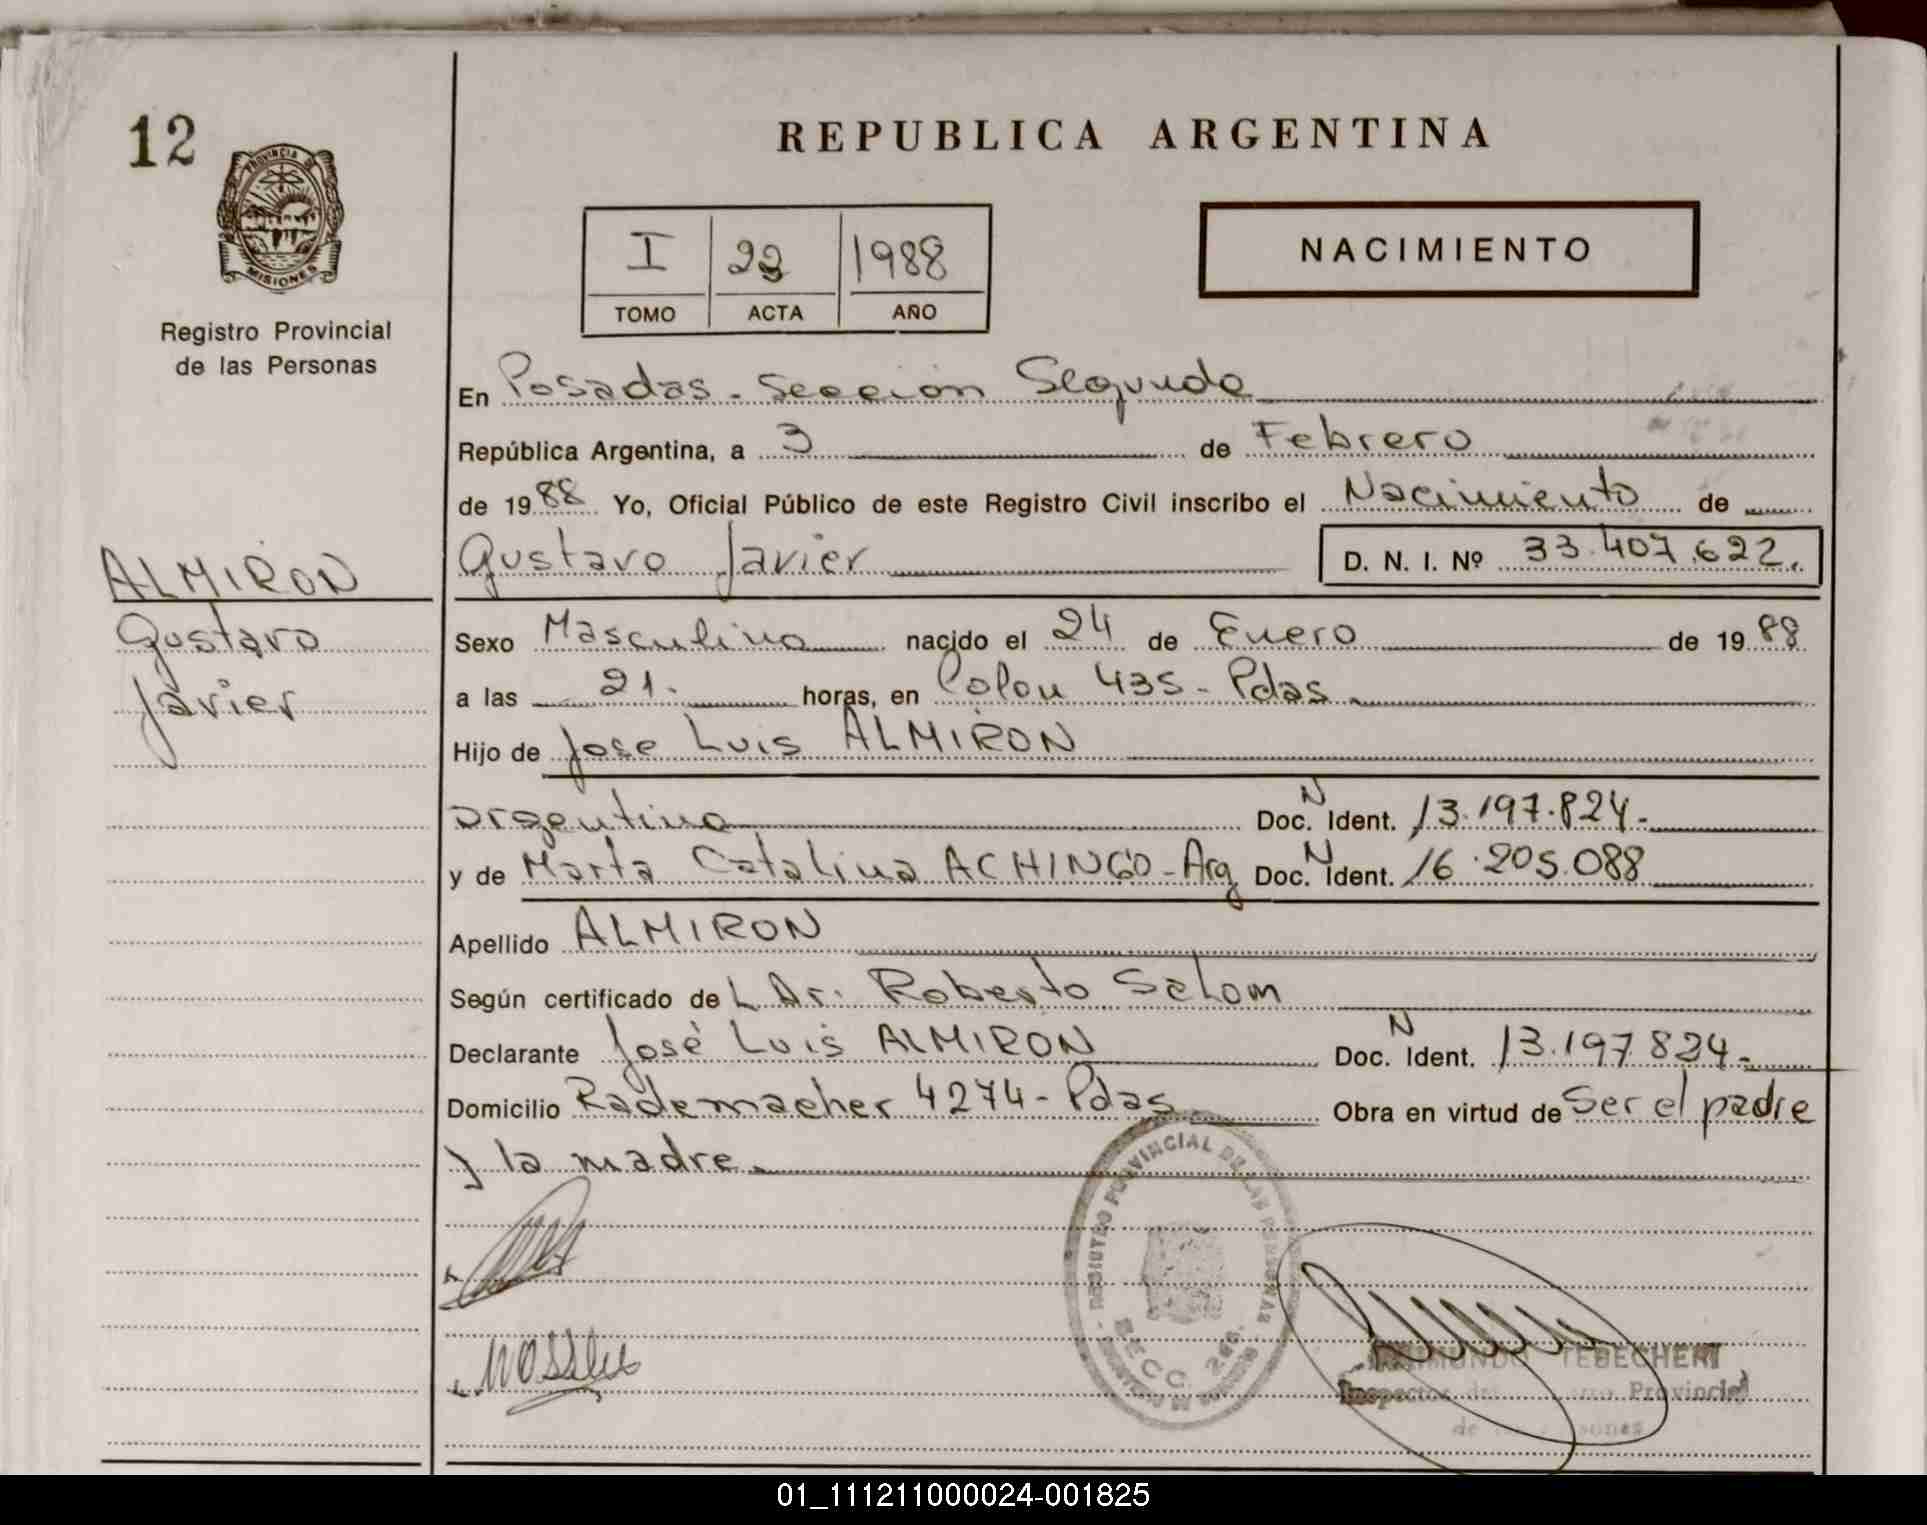 12
PROVINCIA DE
MISIONES
Registro Provincial
de las Personas
REPUBLICA ARGENTINA
I 1988
TOMO ACTA AÑO
NACIMIENTO
En Posadas - Sección Segunda
República Argentina, a 3 de Febrero
de 1988 Yo, Oficial Público de este Registro Civil inscribo el Nacimiento de
Gustavo Javier D. N. I. Nº 33.407.622.
ALMIRON
Gustavo
Javier
Sexo Masculino nacido el 24 de Enero de 1988
a las 21. horas, en Colon 435 - Pdas.
Hijo de Jose Luis ALMIRON
argentino Doc. N Ident. 13.197.824.-
y de Marta Catalina ACHINGO - Arg Doc. N Ident. 16.205.088
Apellido ALMIRON
Según certificado de L Dr. Roberto Salom
Declarante José Luis ALMIRON Doc. N Ident. 13.197.824-
Domicilio Rademacher 4274 - Pdas Obra en virtud de Ser el padre
y la madre.
REGISTRO PROVINCIAL DE LAS PERSONAS
SECC. 2da.
TEBECHERI
Inspector del Provincial
de
01_111211000024-001825